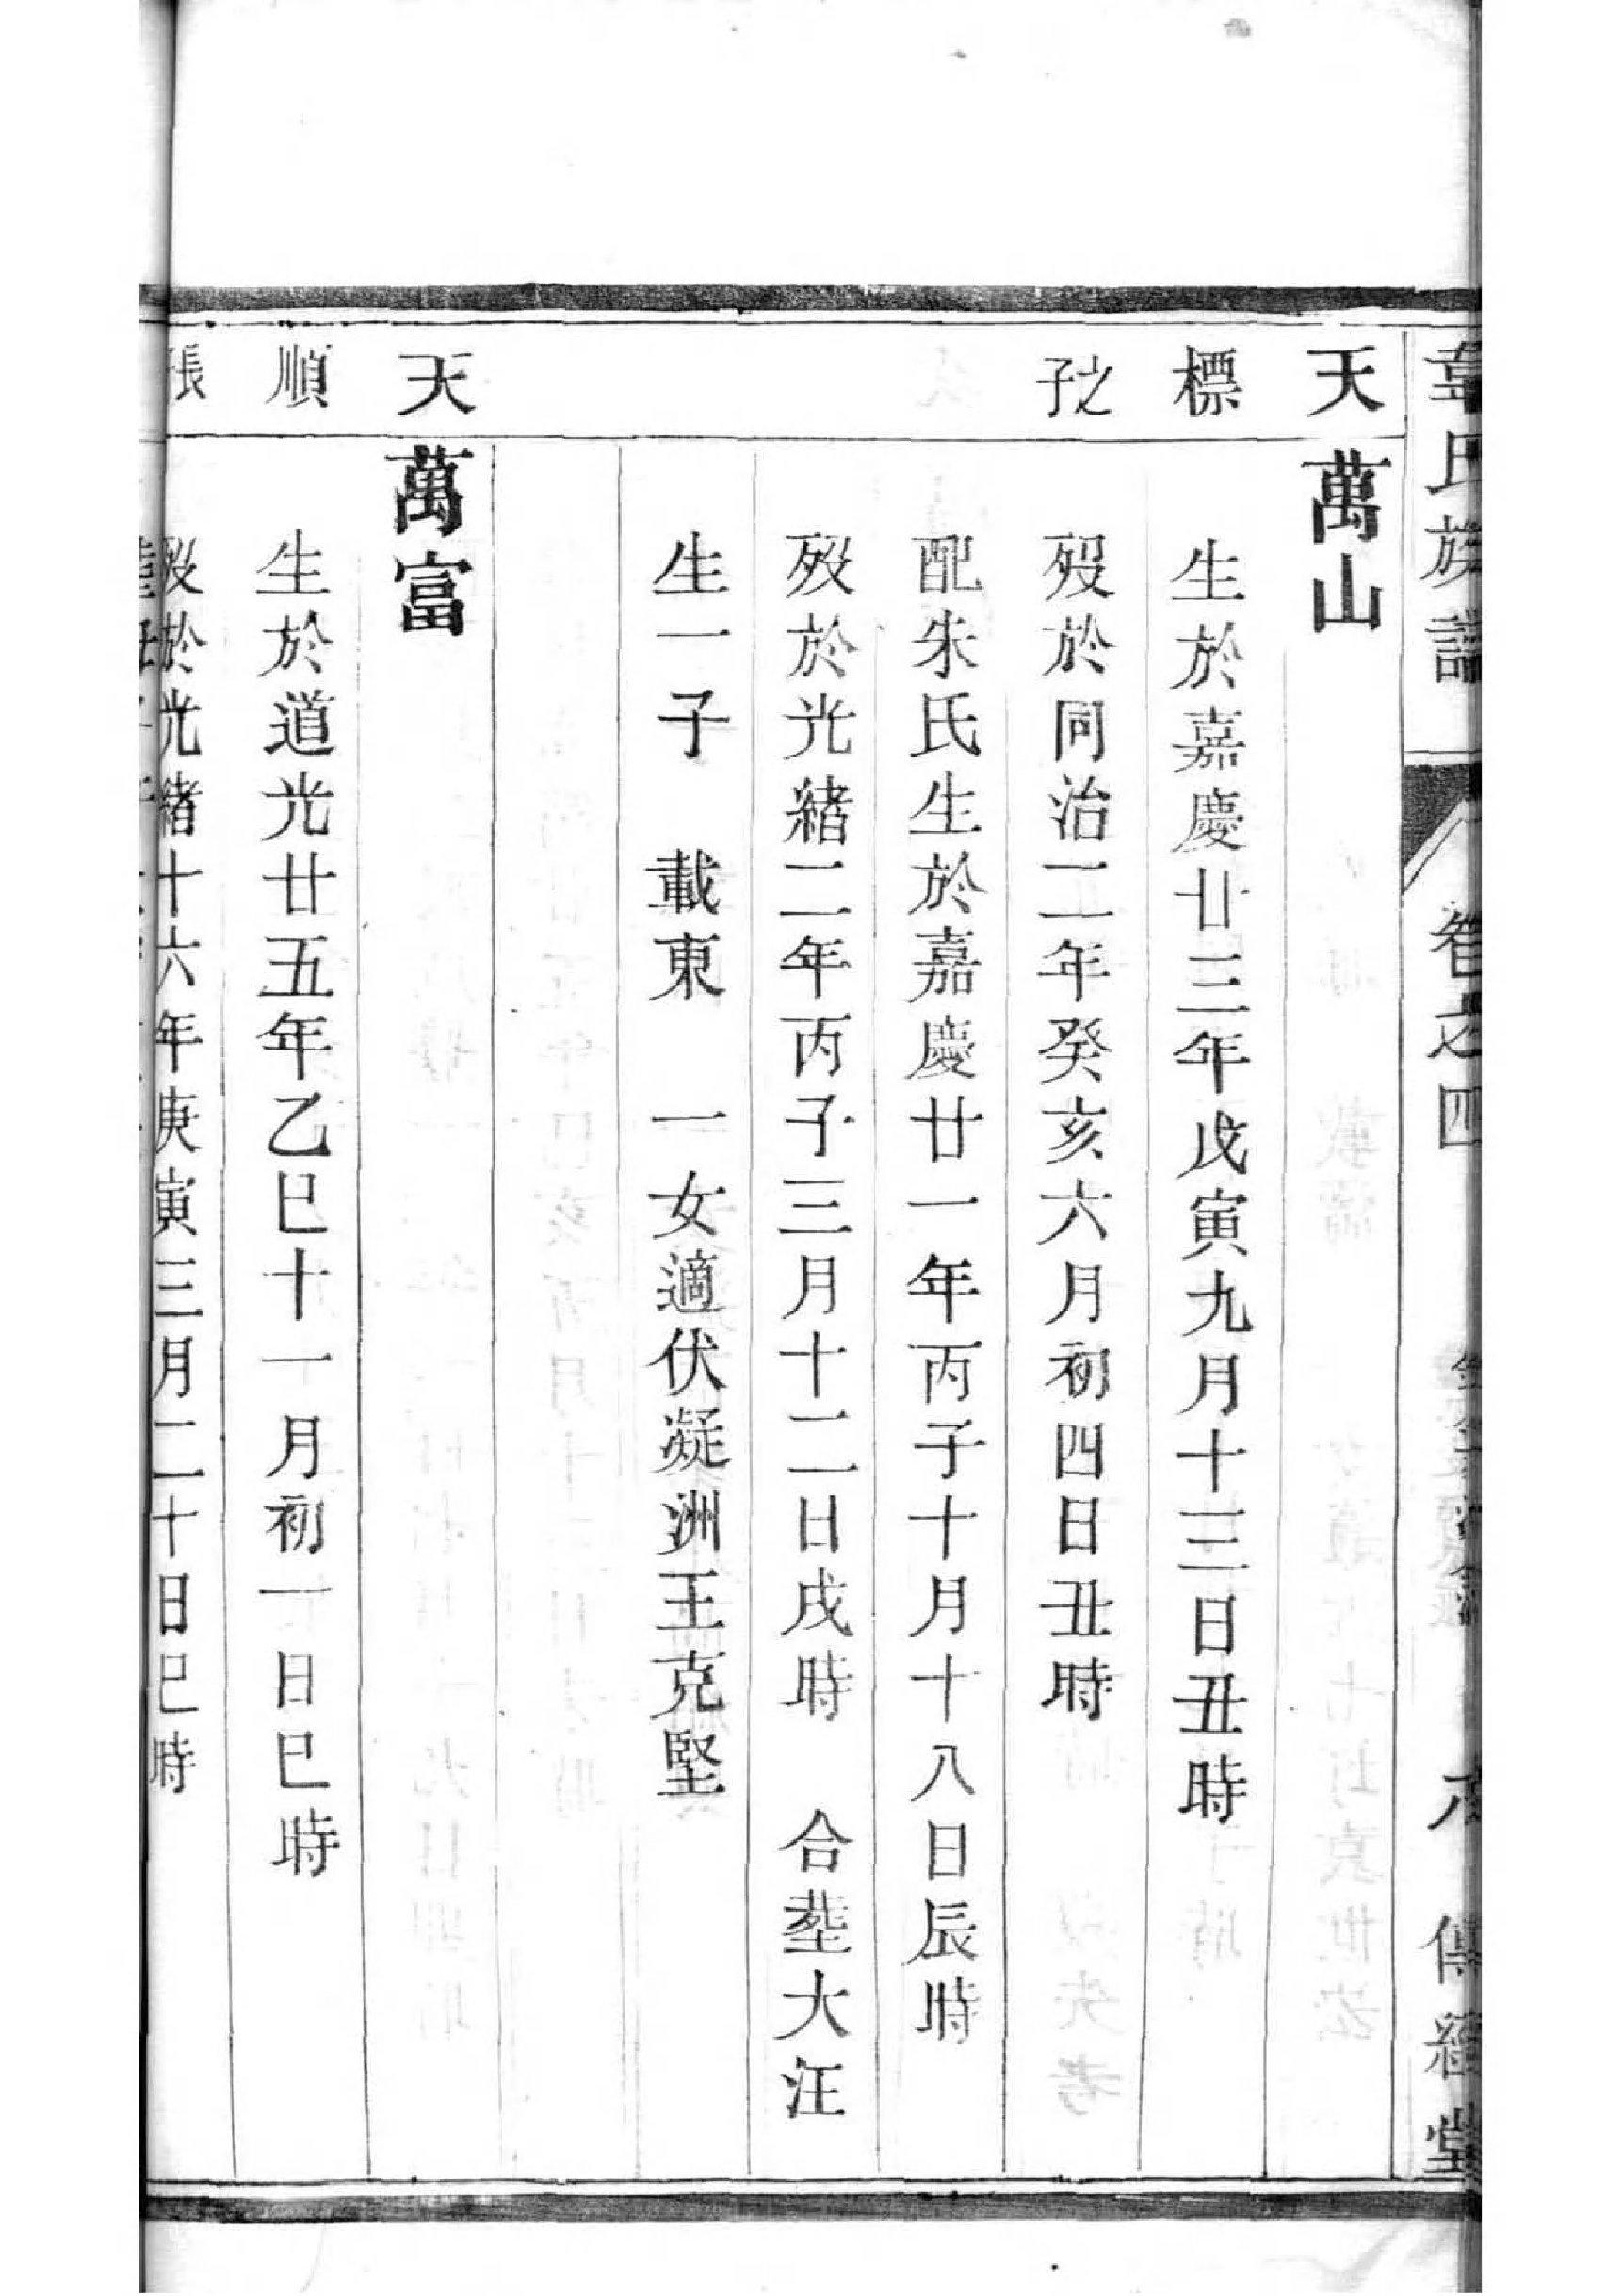 韋氏族譜 卷之四 傳經堂
天 萬山
標 生於嘉慶廿三年戊寅九月十三日丑時
之子 歿於同治二年癸亥六月初四日丑時
配朱氏生於嘉慶廿一年丙子十月十八日辰時
歿於光緖二年丙子三月十二日戌時 合塟大汪
生一子 載東 一女適伏凝洲王克堅
天 萬富
順 生於道光廿五年乙巳十一月初一日巳時
張 歿於光緖十六年庚寅三月二十日巳時